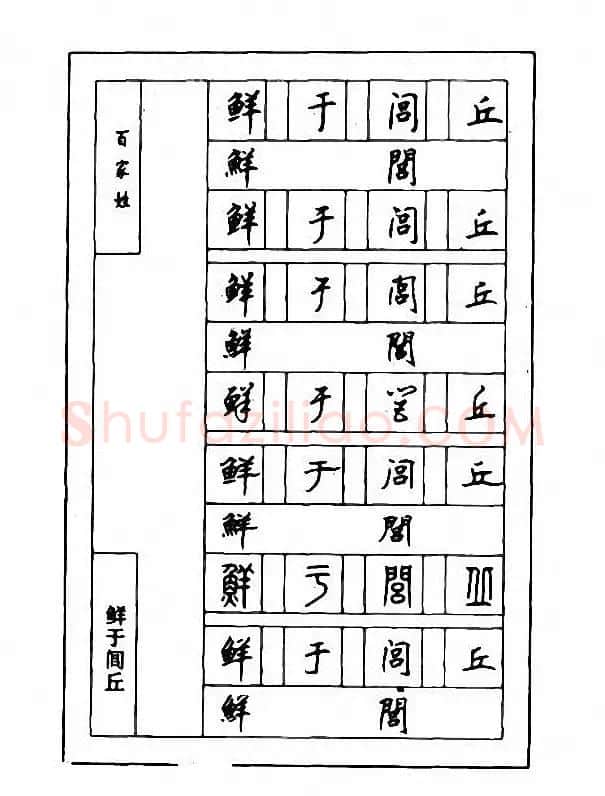 百家姓
鲜于闾丘
鲜 于 闾 丘
鮮 閭
鲜 于 闾 丘
鲜 于 闾 丘
鮮 閭
鲜 于 闾 丘
Shufaziliao.COM
鲜 于 闾 丘
鮮 閭
鮮 于 閭 丘
鲜 于 闾 丘
鮮 閭